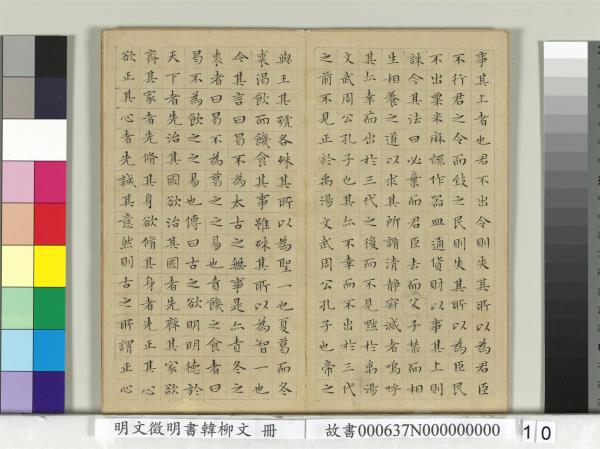 事其上者也君不出令則失其所以為君臣
不行君之令而致之民則失其所以為臣民
不出粟米麻絲作器皿通貨財以事其上則
誅今其法曰必棄而君臣去而父子禁而相
生相養之道以求其所謂清静寂滅者嗚呼
其亦幸而出於三代之後而不見黜於禹湯
文武周公孔子也其亦不幸而不出於三代
之前不見正於禹湯文武周公孔子也帝之
與王其號各殊其所以為聖一也夏葛而冬
裘渴飲而饑食其事雖殊其所以為智一也
今其言曰曷不為太古之無事是亦責冬之
裘者曰曷不為葛之之易也責饑之食者曰
曷不為飲之之易也傳曰古之欲明明德於
天下者先治其國欲治其國者先齊其家欲
齊其家者先脩其身欲脩其身者先正其心
欲正其心者先誠其意然則古之所謂正心
明文徵明書韓柳文 冊
故書000637N000000000
10